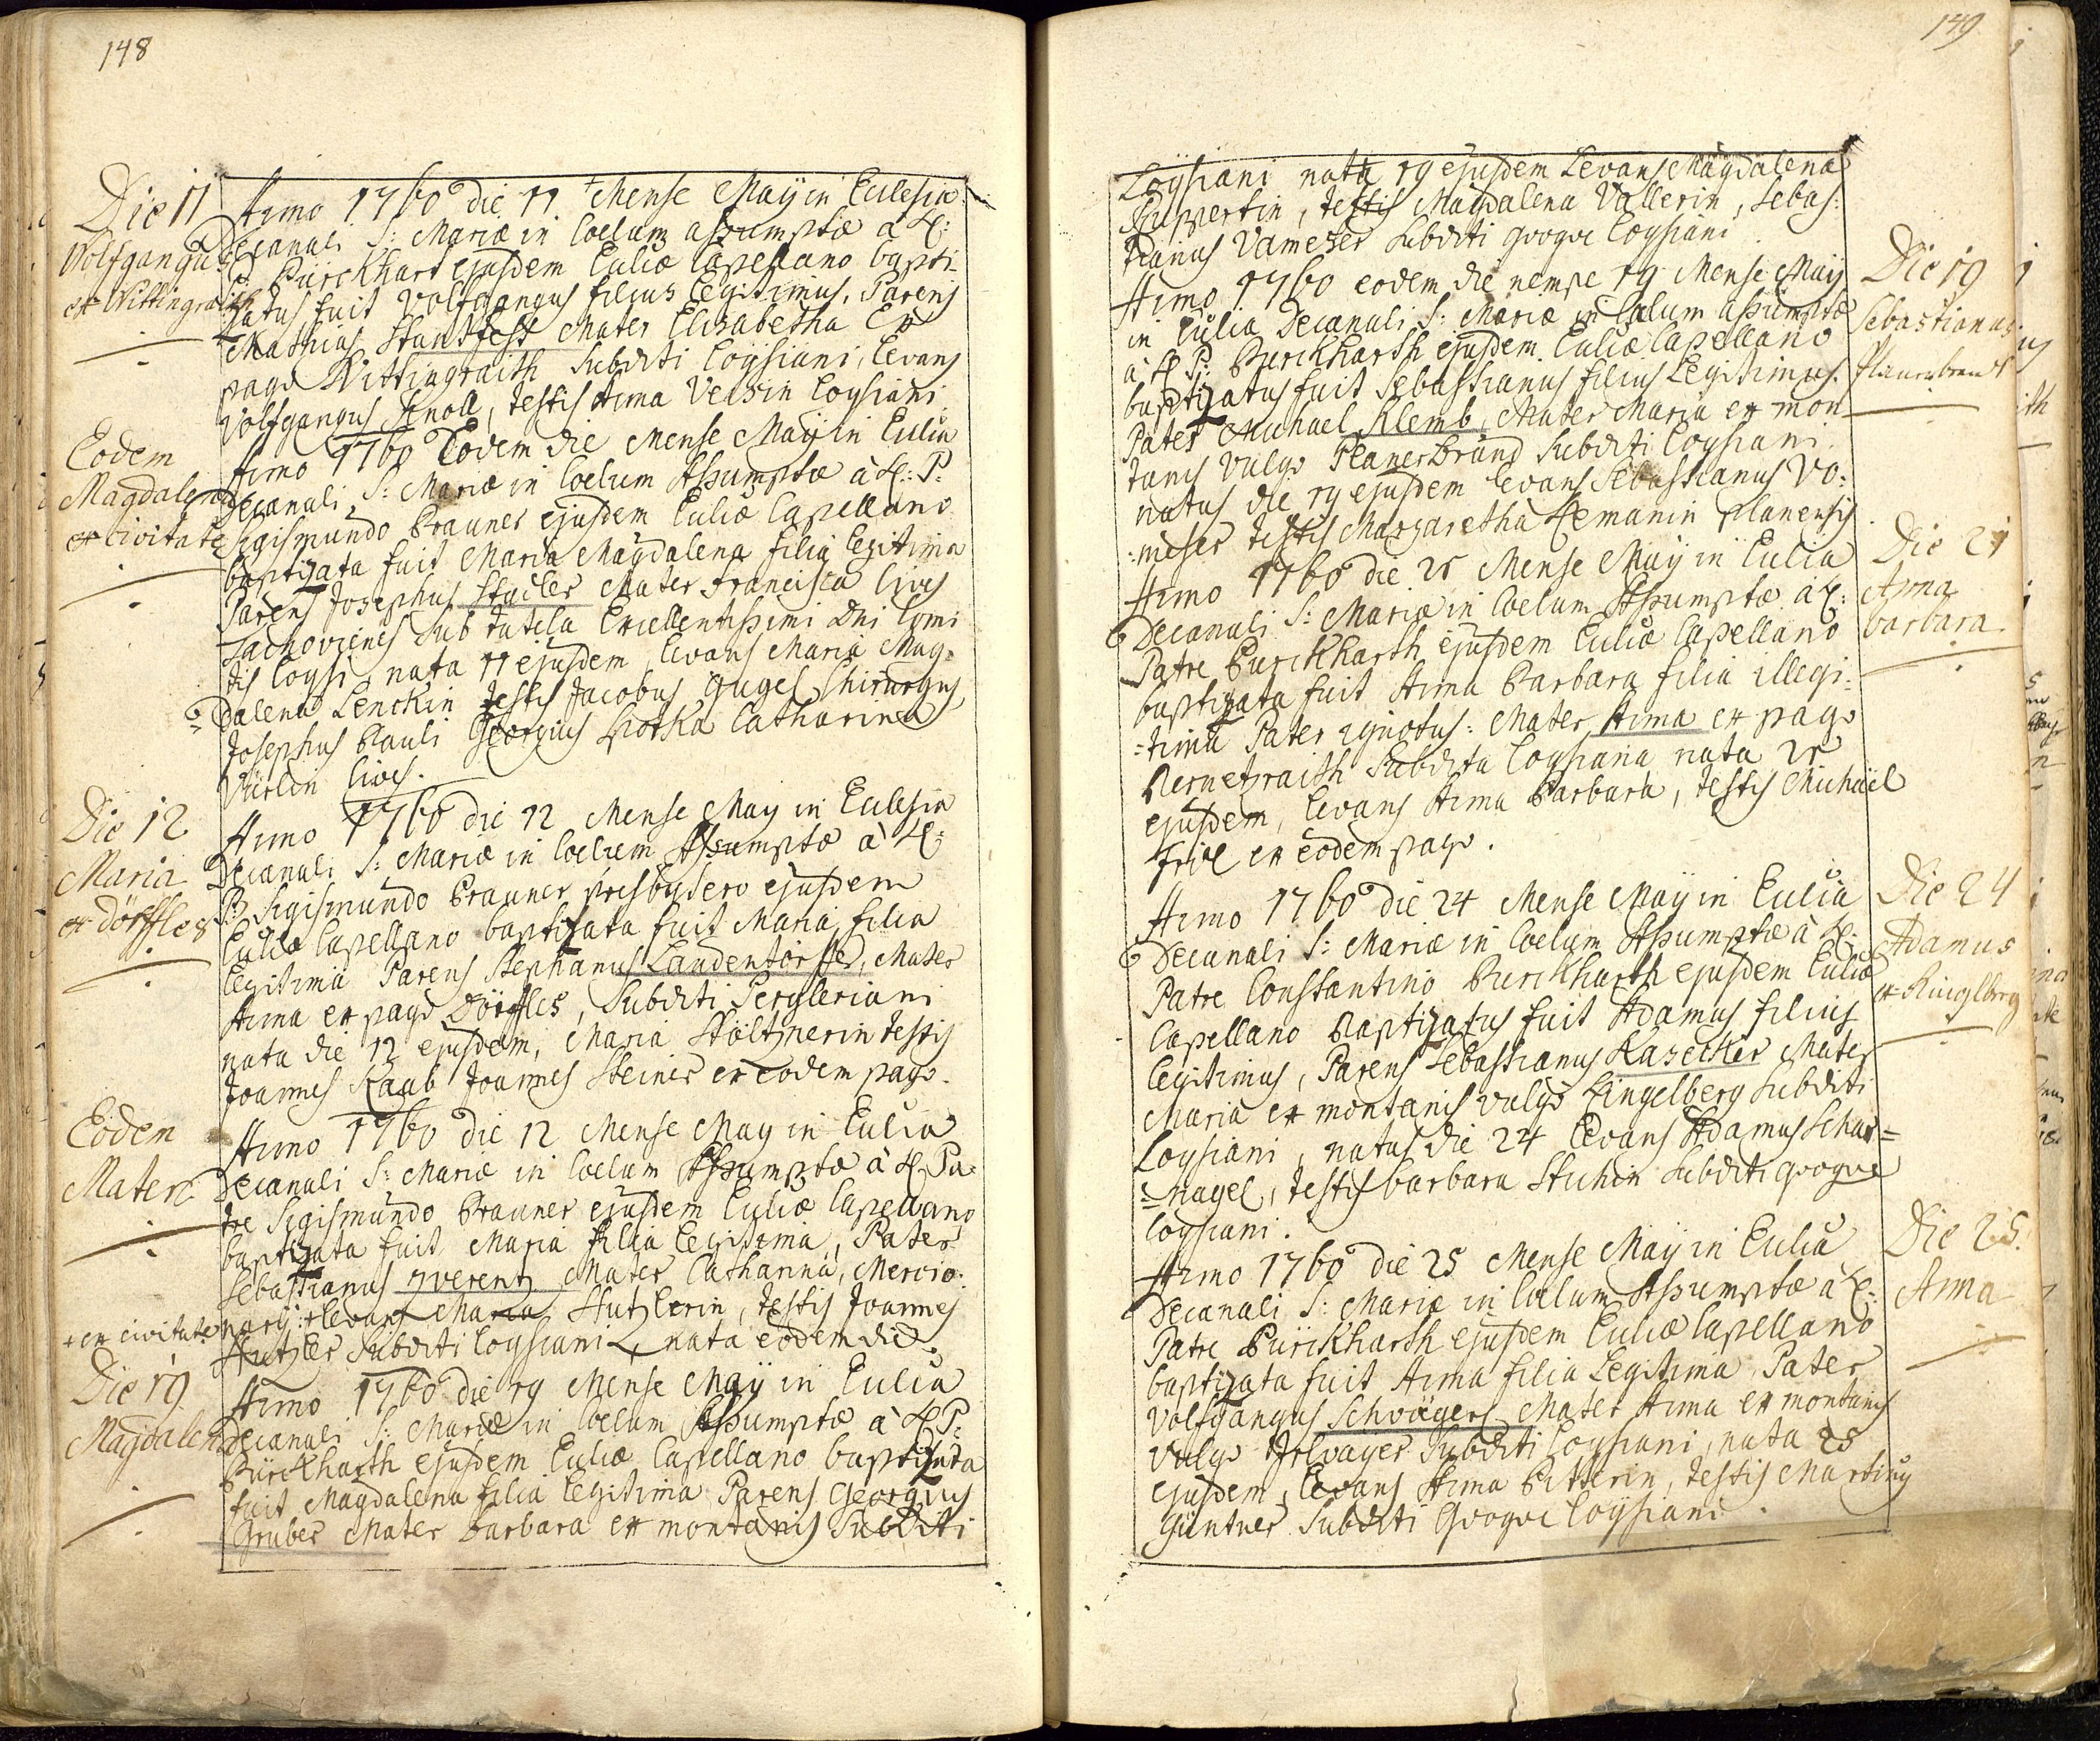 148
Die 11
Wolfgangus
ex Wittingraith
Anno 1760 die 11 Mense Maÿ in Ecclesia
Decanali S: Mariæ in Coelum assumptæ à R:
P: Bürckhart ejusdem Eccliæ Capellano bapti-
zatus fuit Wolfgangus filius legitimus, Parens
Mathias Standfest Mater Elisabetha Ex
pago Wittingraith Subditi Loysiani, Levans
Wolfgangus Knoll, testis Anna Loysiani
Eodem
Magdalena
ex civitate
Anno 1760 Eodem die Mense Maÿ in Ecclia
Decanali S: Mariæ in Coelum Assumptæ à R: P:
Sigismundo Brauner ejusdem Eccliæ Capellano
baptizata fuit Maria Magdalena filia legitima
Parens Josephus Stadler Mater Francisca Cives
Tachovienses sub tutela Excellentissimi Dni Comi
tis Loysi, nata 11 ejusdem, Levans Maria Mag-
dalena Lenckin testis Jacobus Gugel Chirurgus
Josephus Pauli Georgius Hotka Catharina
Cives.
Die 12
Maria
ex Dörffles
Anno 1760 die 12 Mense May in Ecclesia
Decanali S: Mariæ in Coelum Assumptæ à R:
P: Sigismundo Brauner Presbytero ejusdem
Eccliæ Capellano baptizata fuit Maria filia
legitima Parens Stephanus Landentörffer, Mater
Anna ex pago Dörffles, Subditi Pergleriani
nata die 12 ejusdem, Maria Höltznerin testis
Joannes Raab Joannes Steiner ex eodem pago.
Eodem
Anno 1760 die 12 Mense May in Ecclia
Decanali S: Mariæ in Coelum Assumptæ à R: Pa-
tre Sigismundo Brauner ejusdem Eccliæ Capellano
baptizata fuit Maria filia legitima, Pater
Sebastianus Mater Catharina, Mercio-
+ ex civitate
narÿ: + Levans Maria Hutzlerin, testis Joannes
Hutzler Subditi Loysiani, nata eodem die.
Die 19
Magdalena
Anno 1760 die 19 Mense Maÿ in Ecclia
Decanali S: Mariæ in Coelum Assumptæ à R P:
Bürckharth ejusdem Eccliæ Capellano baptizata
fuit Magdalena filia legitima Parens Georgius
Gruber Mater Barbara ex montanis Subditi
149
Loysiani nata 19 ejusdem Levans Magdalena
Ruppertin, testis Magdalena Vallerin, Sebas:
tianus Vameser Subditi quoque Loysiani
Die 19
Sebastianus
Planerbrandt
Anno 1760 eodem die nempe 19 Mense Maÿ
in Eccliæ Decanali S: Mariæ in Cælum assumptæ
à R P: Burckharth ejusdem Eccliæ Capellano
baptizatus fuit Sebastianus filius Legitimus.
Pater Michael Klemb, Mater Maria ex mon
tanis vulgo Planerbrand Subditi Loysiani
natus die 19 ejusdem Levans Sebastianus Vo:
:meser testis Margaretha Hemanin Planensis
Die 21
Anna
Barbara
Anno 1760 die 21 Mense Maÿ in Ecclia
Decanali S: Mariæ in Coelum Assumptæ à R:
Patre Burckharth ejusdem Eccliæ Capellano
baptizata fuit Anna Barbara filia illegi:
=tima Pater ignotus: Mater Anna ex pago
Bernetzraith Subdita Loysiana nata 21
ejusdem, Levans Anna Barbara, testis Michaël
ex eodem pago.
Die 24
Adamus
ex Ringlberg
Anno 1760 die 24 Mense Maÿ in Ecclia
Decanali S: Mariæ in Coelum Assumptæ à R:
Patre Constantino Burckharth ejusdem Eccliæ
Capellano Baptizatus fuit Adamus filius
legitimus, Parens Sebastianus Kasecker Mater
Maria ex montanis vulgo Ringelberg Subditi
Loysiani, natus die 24 Levans Adamus Schar=
=nagel, testis Barbara Stichin Subditi quoque
Loysiani.
Die 25.
Anna
Anno 1760 die 25 Mense Maÿ in Ecclia
Decanali S: Mariæ in Coelum Assumptæ à R:
Patre Bürckharth ejusdem Eccliæ Capellano
baptizata fuit Anna filia Legitima Pater
Wolfgangus Schwägerl Mater Anna ex montanis
vulgo Subditi Loysiani, nata 25
ejusdem, Levans Anna Pitterin, testis Martinus
Güntner Subditi Quoque Loysiani.